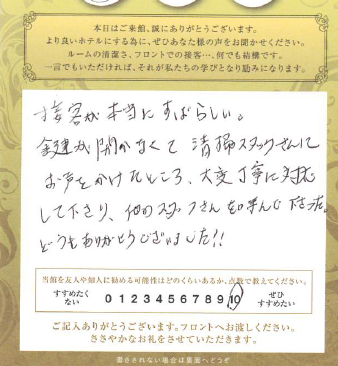 本日はご来館、誠にありがとうございます。
より良いホテルにする為に、ぜひあなた様の声をお聞かせください。
ルームの清潔さ、フロントでの接客…、何でも結構です。
一言でもいただければ、それが私たちの学びとなり励みになります。
接客が本当にすばらしい。
鍵が開かなくて清掃スタッフさんに
お声をかけたところ、大変丁寧に対応
して下さり、他のスタッフさんを呼んで下さった。
どうもありがとうございました!!
当館を友人や知人に勧める可能性はどのくらいあるか、点数で教えてください。
すすめたくない 0 1 2 3 4 5 6 7 8 9 10 ぜひすすめたい
ご記入ありがとうございます。フロントへお渡しください。
ささやかなお礼をさせていただきます。
書ききれない場合は裏面へどうぞ